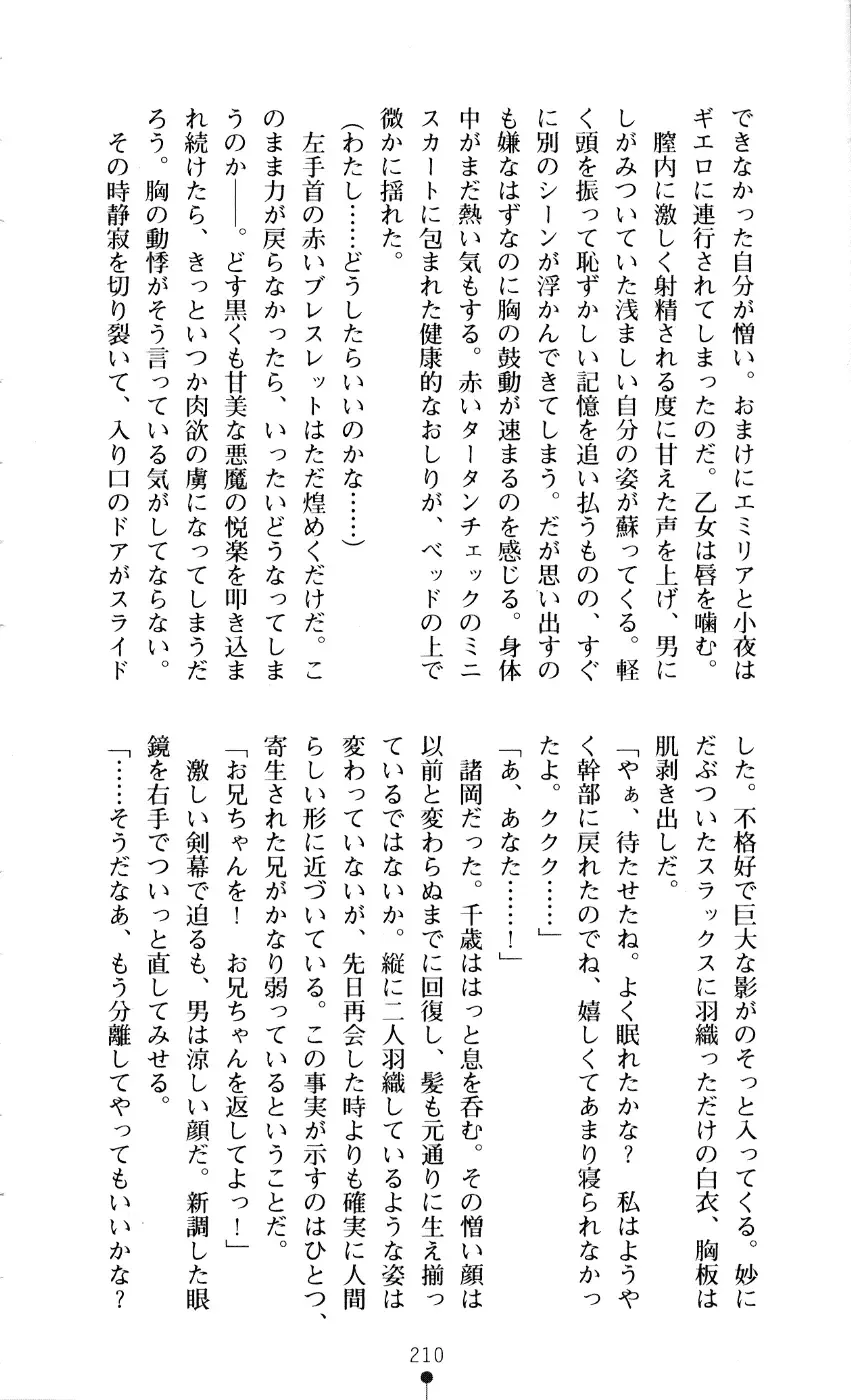 できなかった自分が憎い。おまけにエミリアと小夜は
ギエロに連行されてしまったのだ。乙女は唇を噛む。
　膣内に激しく射精される度に甘えた声を上げ、男に
しがみついていた浅ましい自分の姿が蘇ってくる。軽
く頭を振って恥ずかしい記憶を追い払うものの、すぐ
に別のシーンが浮かんできてしまう。だが思い出すの
も嫌なはずなのに胸の鼓動が速まるのを感じる。身体
中がまだ熱い気もする。赤いタータンチェックのミニ
スカートに包まれた健康的なおしりが、ベッドの上で
微かに揺れた。
（わたし……どうしたらいいのかな……）
　左手首の赤いブレスレットはただ煌めくだけだ。こ
のまま力が戻らなかったら、いったいどうなってしま
うのか――。どす黒くも甘美な悪魔の悦楽を叩き込ま
れ続けたら、きっといつか肉欲の虜になってしまうだ
ろう。胸の動悸がそう言っている気がしてならない。
　その時静寂を切り裂いて、入り口のドアがスライド
した。不格好で巨大な影がのそっと入ってくる。妙に
だぶついたスラックスに羽織っただけの白衣、胸板は
肌剥き出しだ。
「やぁ、待たせたね。よく眠れたかな？　私はようや
く幹部に戻れたのでね、嬉しくてあまり寝られなかっ
たよ。ククク……」
「あ、あなた……！」
　諸岡だった。千歳ははっと息を呑む。その憎い顔は
以前と変わらぬまでに回復し、髪も元通りに生え揃っ
ているではないか。縦に二人羽織しているような姿は
変わっていないが、先日再会した時よりも確実に人間
らしい形に近づいている。この事実が示すのはひとつ、
寄生された兄がかなり弱っているということだ。
「お兄ちゃんを！　お兄ちゃんを返してよっ！」
　激しい剣幕で迫るも、男は涼しい顔だ。新調した眼
鏡を右手でついっと直してみせる。
「……そうだなあ、もう分離してやってもいいかな？
210